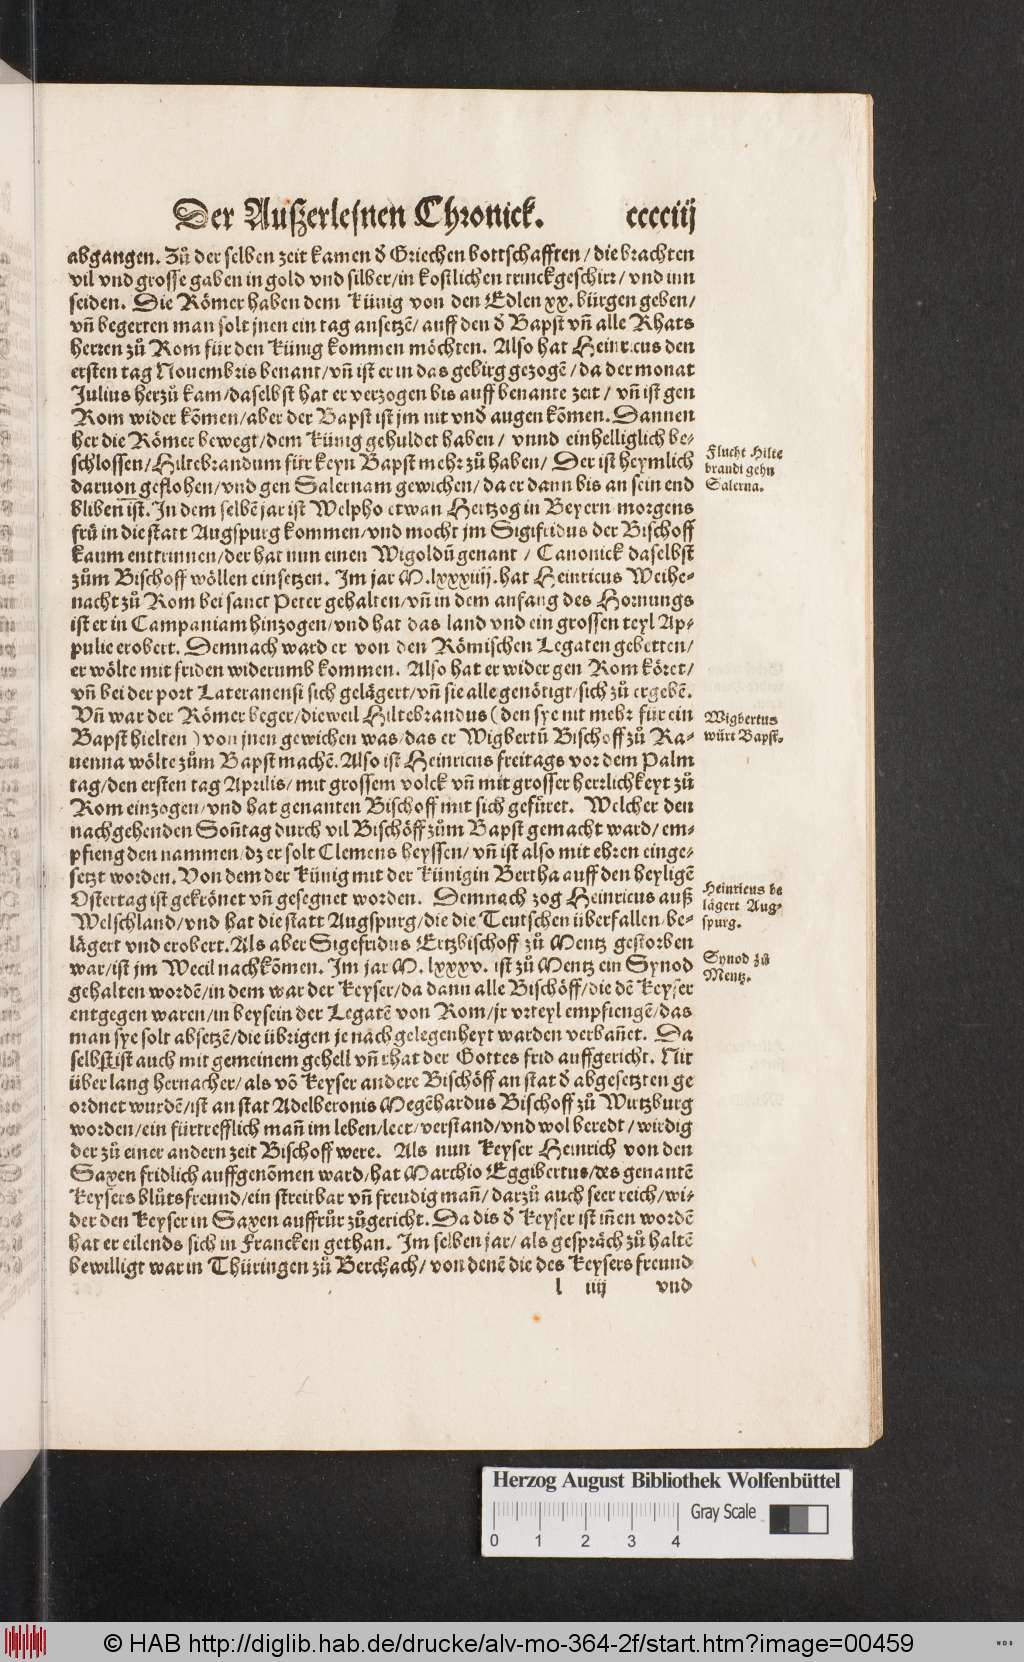 Der Außerlesnen Chronick. cccciij
abgangen. Zů der selben zeit kamen d̕ Griechen bottschafften / die brachten
vil vnd grosse gaben in gold vnd silber / in kostlichen trinckgeschirr / vnd inn
seiden. Die Römer haben dem künig von den Edlen xx. bürgen geben /
vñ begerten man solt jnen ein tag ansetzẽ / auff den d̕ Bapst vñ alle Rhats
herren zů Rom für den künig kommen möchten. Also hat Heinricus den
ersten tag Nouembris benant / vñ ist er in das gebirg gezogẽ / da der monat
Julius herzů kam / daselbst hat er verzogen bis auff benante zeit / vñ ist gen
Rom wider kõmen / aber der Bapst ist jm nit vnd̕ augen kõmen. Dannen
her die Römer bewegt / dem künig gehuldet haben / vnnd einhelliglich be-
schlossen / Hiltebrandum für keyn Bapst mehr zů haben / Der ist heymlich
daruon geflohen / vnd gen Salernam gewichen / da er dann bis an sein end
bliben ist. In dem selbẽ jar ist Welpho etwan Hertzog in Beyern morgens
frů in die statt Augspurg kommen / vnd mocht jm Sigifridus der Bischoff
kaum enttrinnen / der hat nun einen Wigoldũ genant / Canonick daselbst
zům Bischoff wöllen einsetzen. Im jar M.lxxxiiij. hat Heinricus Weihe-
nacht zů Rom bei sanct Peter gehalten / vñ in dem anfang des Hornungs
ist er in Campaniam hinzogen / vnd hat das land vnd ein grossen teyl Ap-
pulie erobert. Demnach ward er von den Römischen Legaten gebetten /
er wölte mit friden widerumb kommen. Also hat er wider gen Rom köret /
vñ bei der port Lateranensi sich gelägert / vñ sie alle genötigt / sich zů ergebẽ.
Vñ war der Römer beger / dieweil Hiltebrandus ( den sye nit mehr für ein
Bapst hielten ) von jnen gewichen was / das er Wigbertũ Bischoff zů Ra-
uenna wölte zům Bapst machẽ. Also ist Heinricus freitags vor dem Palm
tag / den ersten tag Aprilis / mit grossem volck vñ mit grosser herrlichkeyt zů
Rom einzogen / vnd hat genanten Bischoff mit sich gefüret. Welcher den
nachgehenden Soñtag durch vil Bischöff zům Bapst gemacht ward / em-
pfieng den nammen / dz er solt Clemens heyssen / vñ ist also mit ehren einge-
setzt worden. Von dem der künig mit der künigin Bertha auff den heyligẽ
Ostertag ist gekrönet vñ gesegnet worden. Demnach zog Heinricus auß
Welschland / vnd hat die statt Augspurg / die die Teutschen überfallen / be-
lägert vnd erobert. Als aber Sigefridus Ertzbischoff zů Mentz gestorben
war / ist jm Wecil nachkõmen. Im jar M. lxxxv. ist zů Mentz ein Synod
gehalten wordẽ / in dem war der keyser / da dann alle Bischöff / die dẽ keyser
entgegen waren / in beysein der Legatẽ von Rom / jr vrteyl empfiengẽ / das
man sye solt absetzẽ / die übrigen je nach gelegenheyt warden verbañet. Da
selbst ist auch mit gemeinem gehell vñ rhat der Gottes frid auffgericht. Nit
über lang hernacher / als võ keyser andere Bischöff an stat d̕ abgesetzten ge
ordnet wurdẽ / ist an stat Adelberonis Megẽhardus Bischoff zů Wirtzburg
worden / ein fürtrefflich mañ im leben / leer / verstand / vnd wol beredt / wirdig
der zů einer andern zeit Bischoff were. Als nun keyser Heinrich von den
Saxen fridlich auffgenõmen ward / hat Marchio Eggibertus / des genantẽ
keysers blůtsfreund / ein streitbar vñ freudig mañ / darzů auch seer reich / wi-
der den keyser in Saxen auffrůr zůgericht. Da dis d̕ keyser ist iñen wordẽ
hat er eilends sich in Francken gethan. Im selben jar / als gespräch zů haltẽ
bewilligt war in Thüringen zů Berchach / von denẽ die des keysers freund
l iiij vnd
Flucht Hilte
brandi gehn
Salerna.
Wigbertus
würt Bapst.
Heinricus be
lägert Aug-
spurg.
Synod zů
Mentz.
Herzog August Bibliothek Wolfenbüttel
0 1 2 3 4 Gray Scale
© HAB http://diglib.hab.de/drucke/alv-mo-364-2f/start.htm?image=00459